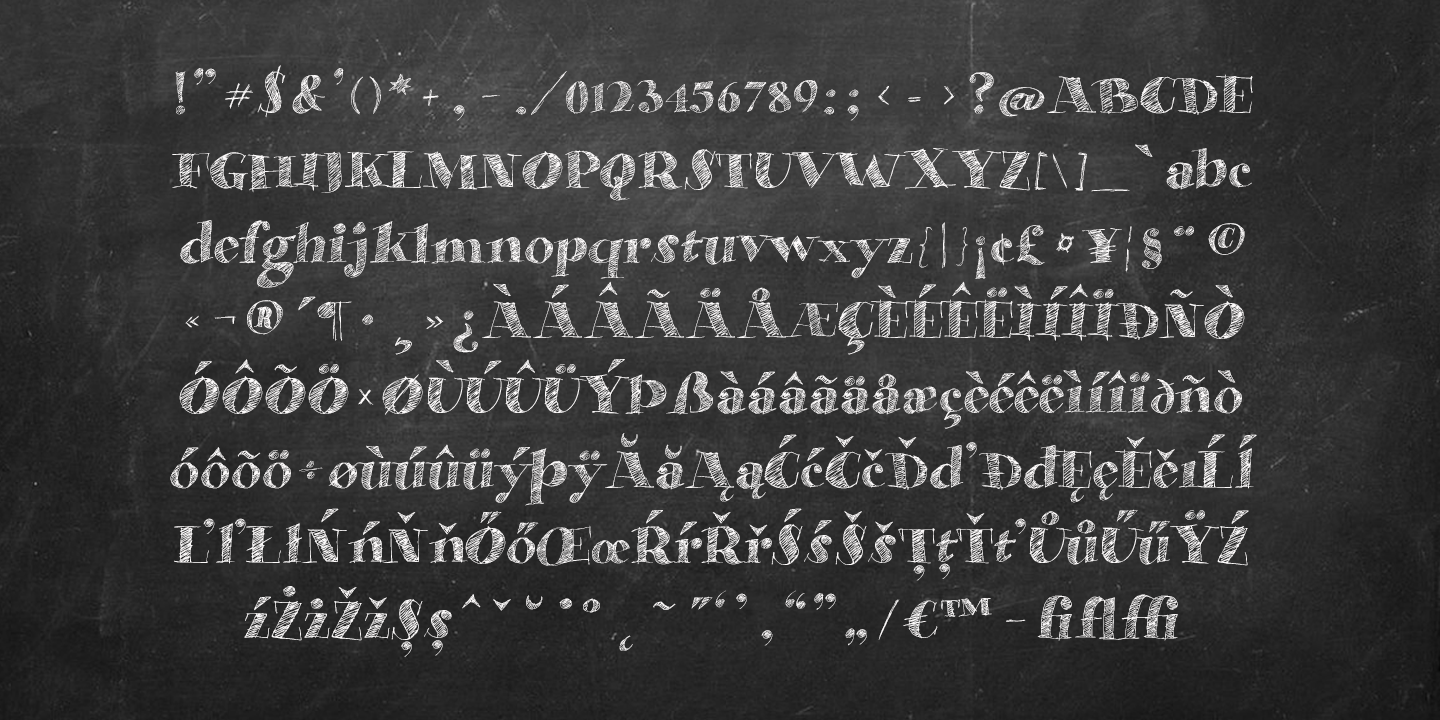 !”#$&’()*+,-./0123456789:;<=>?@ABCDE
FGHIJKLMNOPQRSTUVWXYZ[\]_`abc
defghijklmnopqrstuvwxyz{|}¡¢£¤¥¦§¨©
«¬®´¶·¸»¿ÀÁÂÃÄÅÆÇÈÉÊËÌÍÎÏÐÑÒ
ÓÔÕÖ×ØÙÚÛÜÝÞßàáâãäåæçèéêëìíîïðñò
óôõö÷øùúûüýþÿĂăĄąĆćČčĎďĐđĘęĚěıĹĺ
ĽľŁłŃńŇňŐőŒœŔŕŘřŚśŠšŢţŤťŮůŰűŸŹ
źŻżŽžȘșˆˇ˘˙˚˛˜˝‘’‚“”„⁄€™−fiflffi